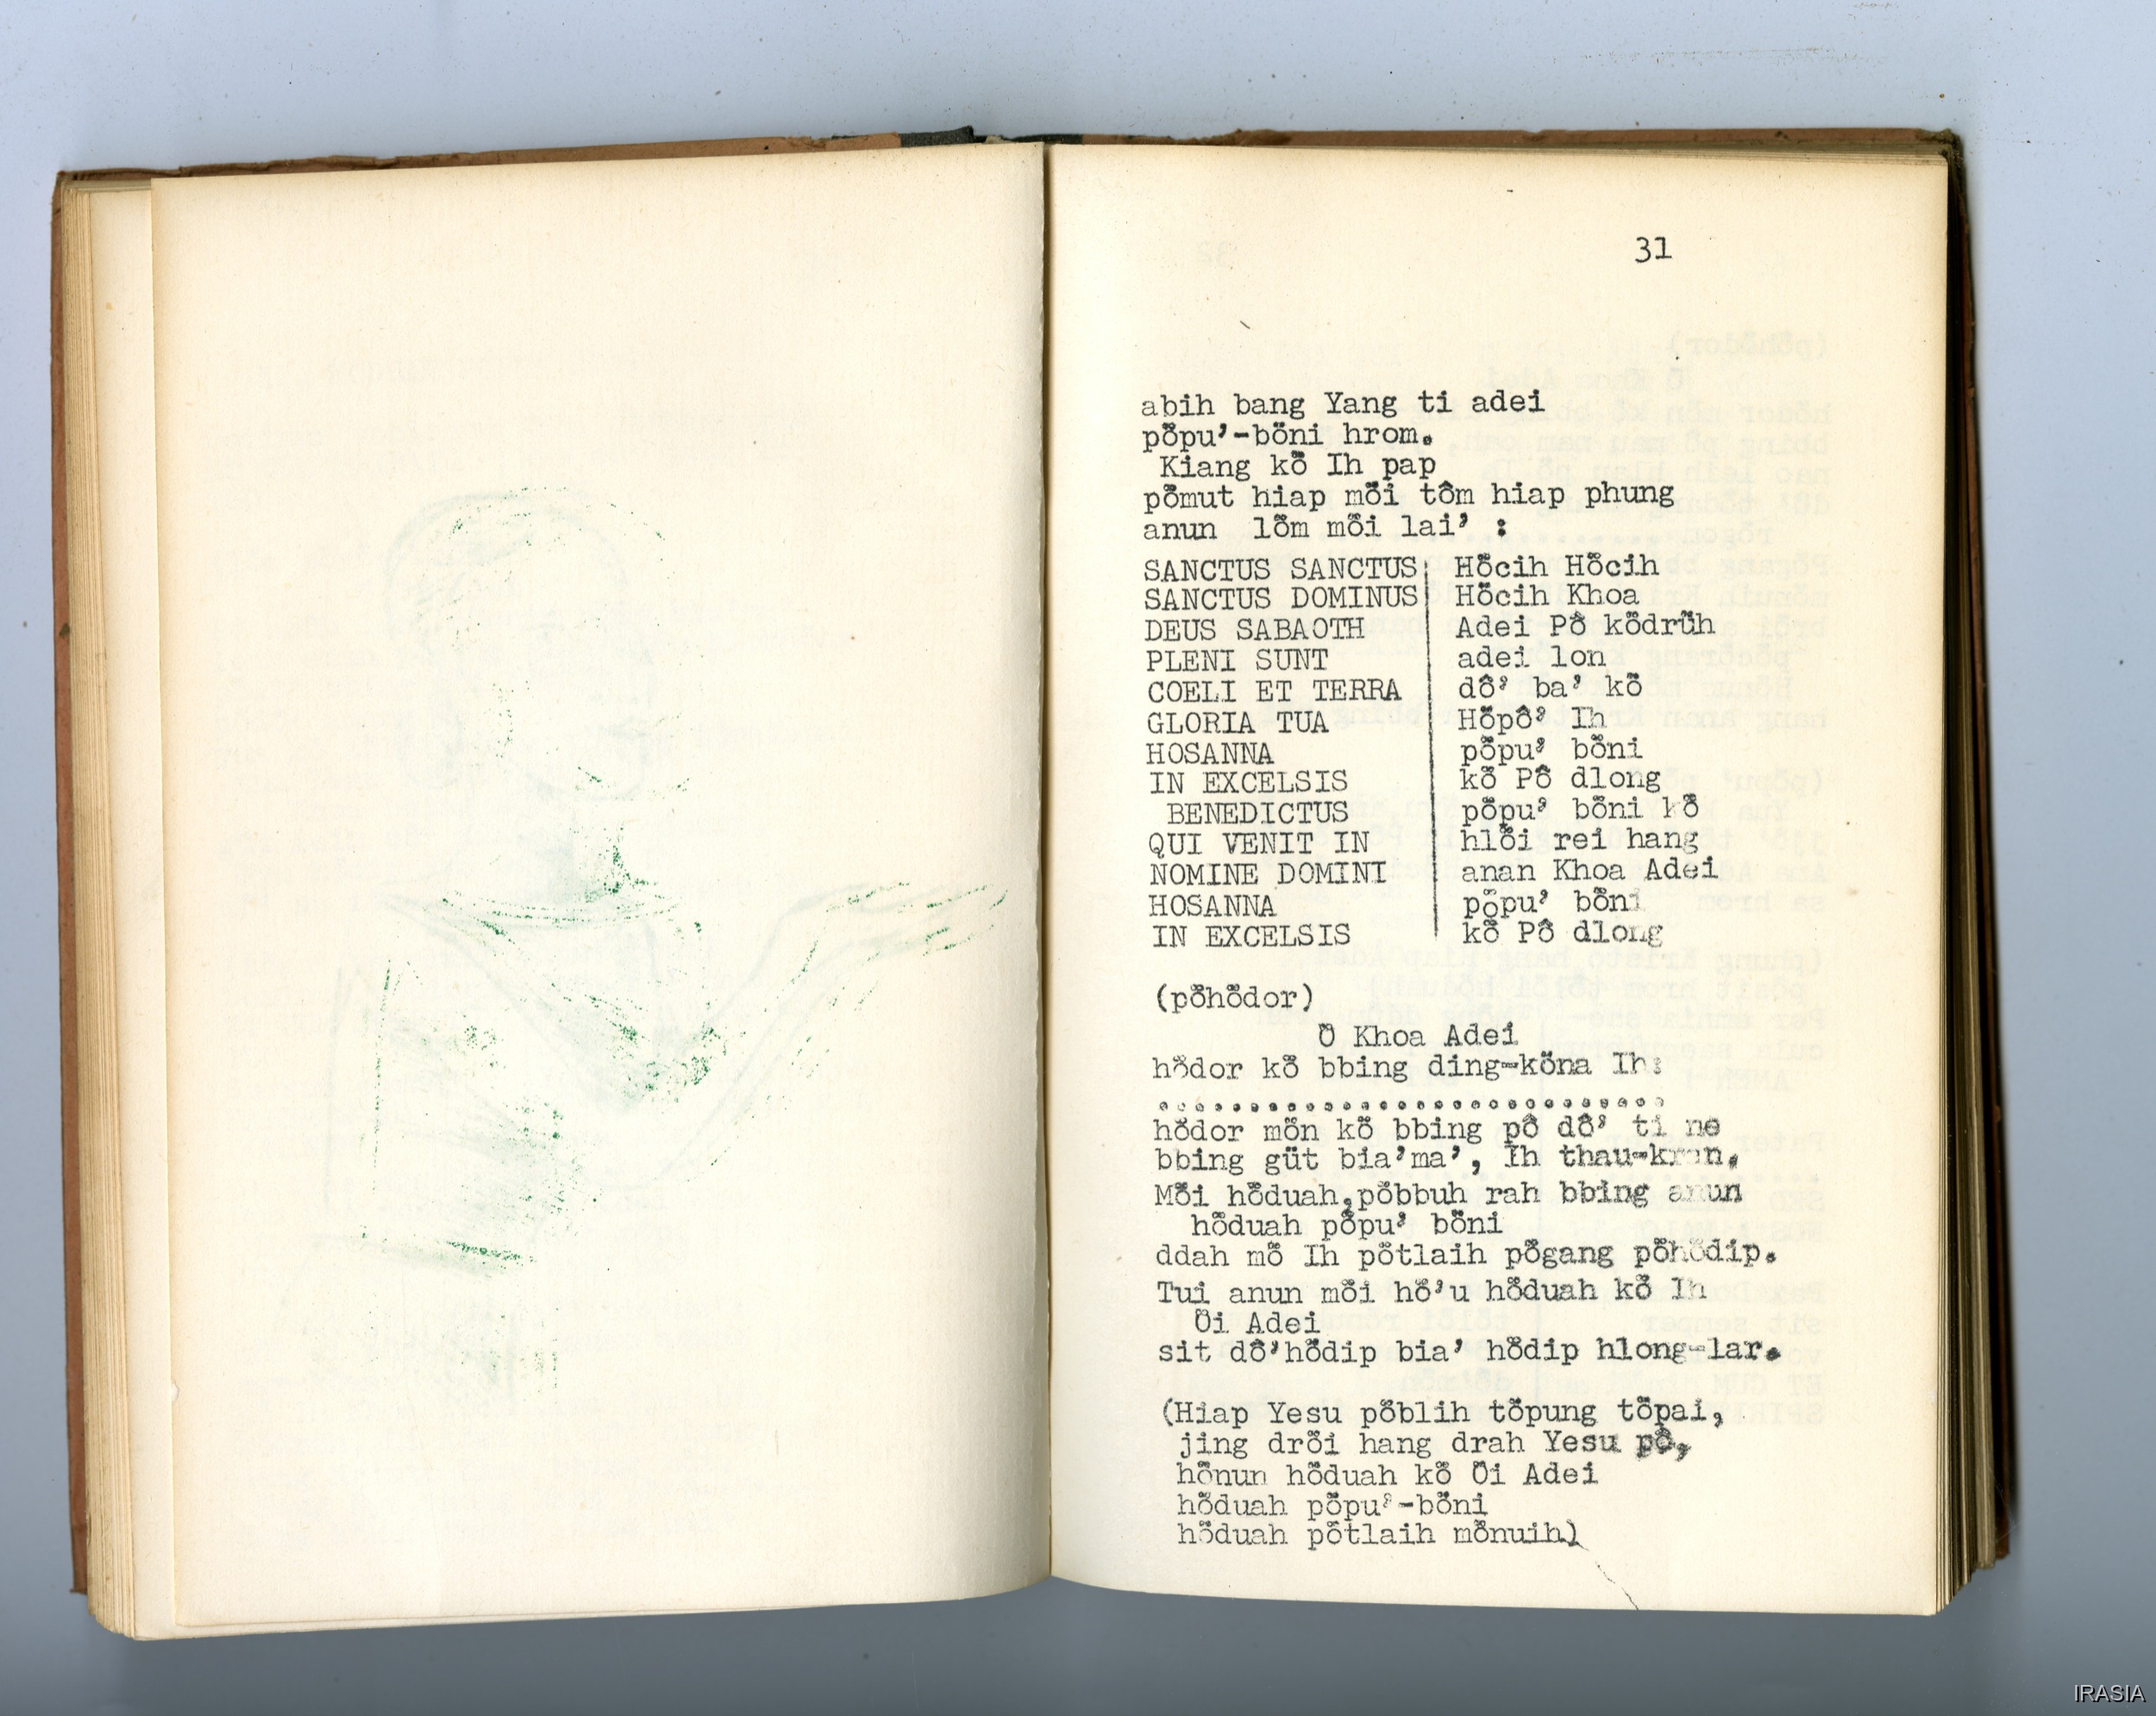 31
abih bang Yang ti adei
pö̆pu’-böni hrom.
Kiang kö̆ Ih pap
pö̆mut hiap mö̆i tôm hiap phung
anun lö̆m mö̆i lai’ :
SANCTUS SANCTUS | Hö̆cih Hö̆cih
SANCTUS DOMINUS | Hö̆cih Khoa
DEUS SABAOTH | Adei Pô̆ kö̆drü̆h
PLENI SUNT | adei lon
COELI ET TERRA | dô̆’ ba’ kö̆
GLORIA TUA | Hö̆pô̆’ Ih
HOSANNA | pö̆pu’ böni
IN EXCELSIS | kö̆ Pô̆ dlong
BENEDICTUS | pö̆pu’ böni kö̆
QUI VENIT IN | hlö̆i rei hang
NOMINE DOMINI | anan Khoa Adei
HOSANNA | pö̆pu’ böni
IN EXCELSIS | kö̆ Pô̆ dlong
(pö̆hö̆dor)
Ö̆ Khoa Adei
hö̆dor kö̆ bbing ding-köna Ih:
..............................
hö̆dor mö̆n kö̆ bbing pô̆ dô̆’ ti ne
bbing güt bia’ma’, Ih thau-kran.
Mö̆i hö̆duah,pö̆bbuh rah bbing anun
hö̆duah pö̆pu’ böni
ddah mö̆ Ih pö̆tlaih pö̆gang pö̆hö̆dip.
Tui anun mö̆i hö̆’u hö̆duah kö̆ Ih
Ö̆i Adei
sit dô̆’hö̆dip bia’ hö̆dip hlong-lar.
(Hiap Yesu pö̆blih tö̆pung tö̆pai,
jing drö̆i hang drah Yesu pô̆,
hö̆nun hö̆duah kö̆ Ö̆i Adei
hö̆duah pö̆pu’-böni
hö̆duah pö̆tlaih mö̆nuih)
IRASIA